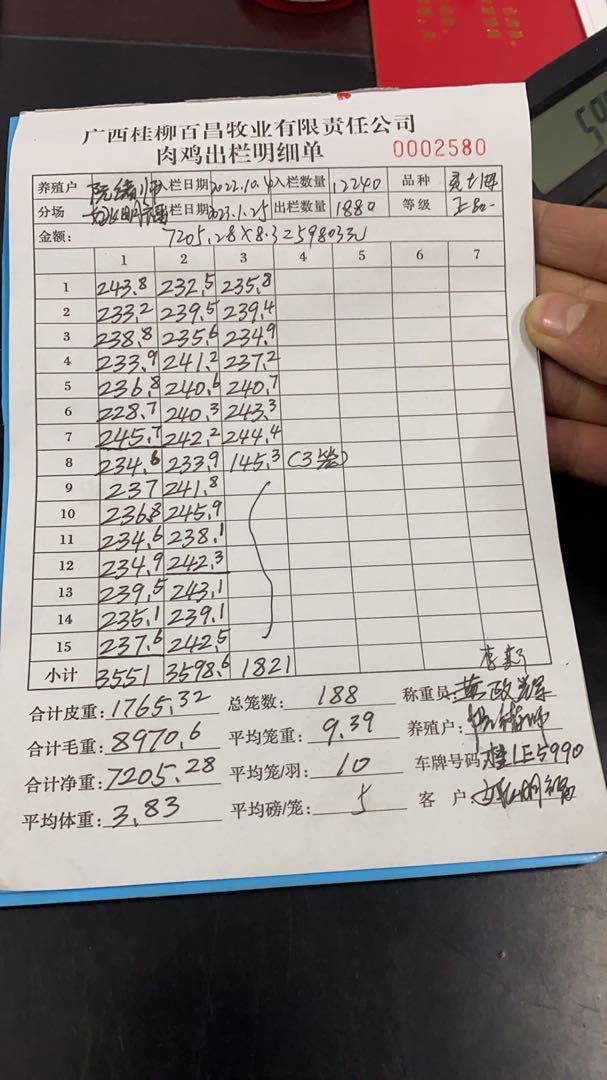 广西桂柳百昌牧业有限责任公司
肉鸡出栏明细单 0002580
养殖户 入栏日期 2022.10.4 入栏数量 12240 品种
分场 出栏日期 2023.1.25 出栏数量 1880 等级 正品一
金额: 7205.28×8.3=59803元
1 2 3 4 5 6 7
1 243.8 232.5 235.8
2 233.2 239.5 239.4
3 238.8 235.6 234.9
4 233.9 241.2 237.2
5 236.8 240.6 240.7
6 228.7 240.3 243.3
7 245.7 242.2 244.4
8 234.6 233.9 145.3 (3笼)
9 237 241.8
10 236.8 245.9
11 234.6 238.1
12 234.9 242.3
13 239.5 243.1
14 235.1 239.1
15 237.6 242.5
小计 3551 3598.6 1821
合计皮重: 1765.32 总笼数: 188 称重员: 黄政
合计毛重: 8970.6 平均笼重: 9.39 养殖户:
合计净重: 7205.28 平均笼/羽: 10 车牌号码: 桂LE5990
平均体重: 3.83 平均磅/笼: 5 客 户: